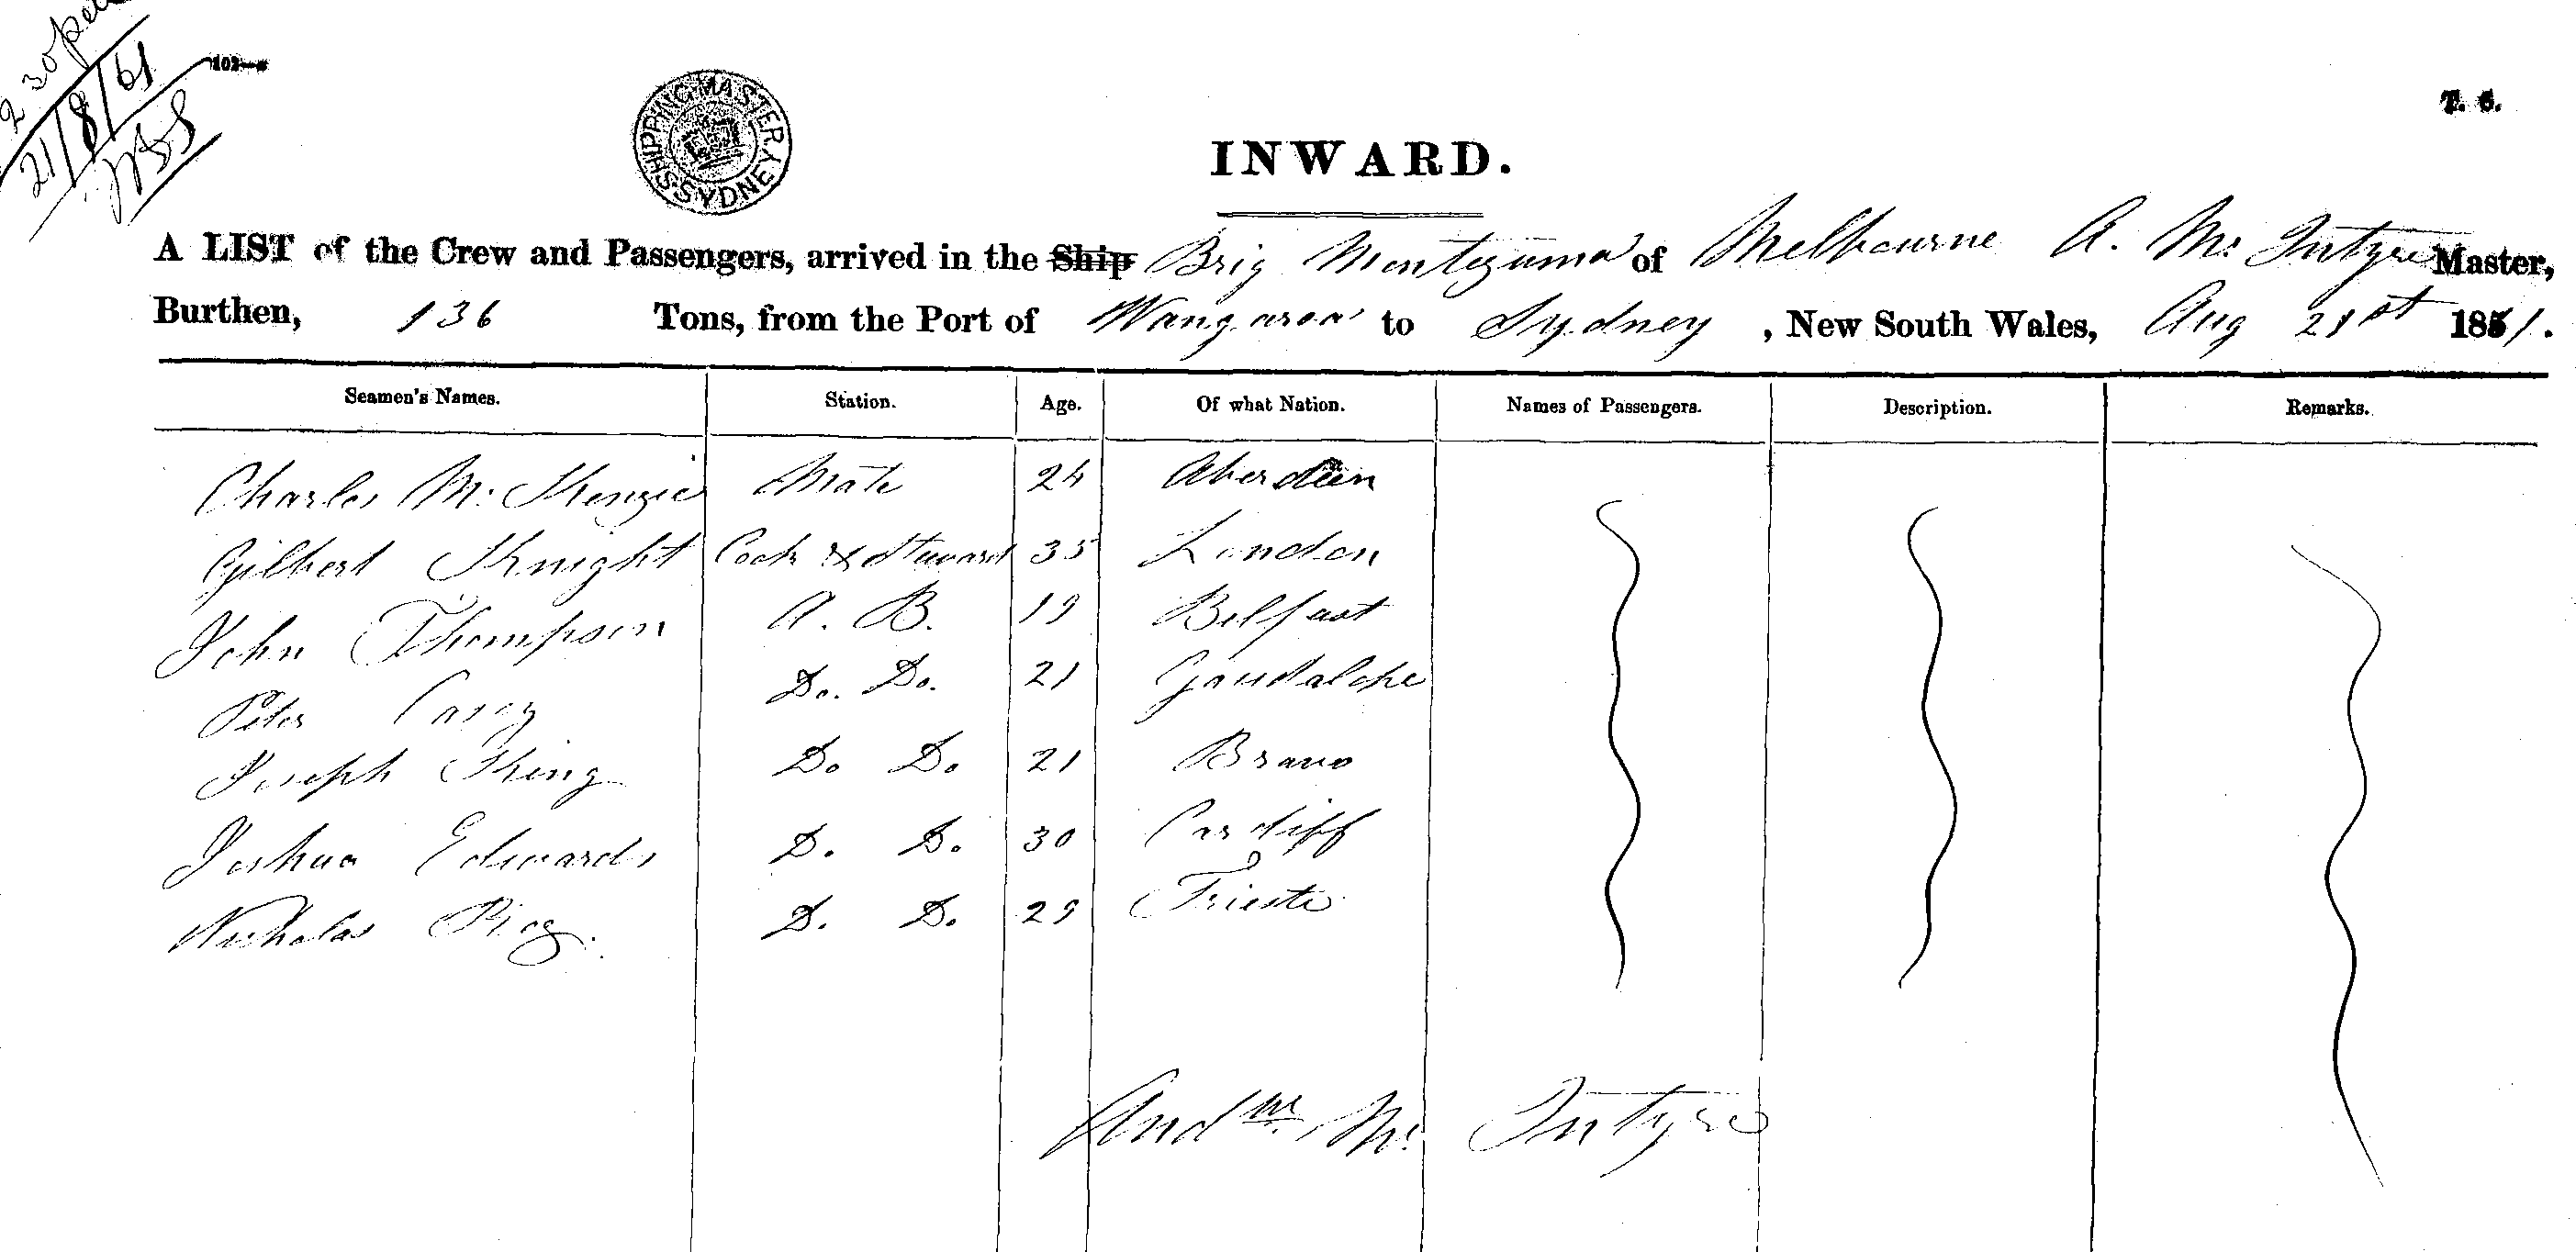 2 30 p
21/8/61
102—
SHIPPING MASTER SYDNEY
T. S.
INWARD.
A LIST of the Crew and Passengers, arrived in the Ship Brig Montezuma of Melbourne A. Mc Intyre Master,
Burthen, 136 Tons, from the Port of Wangaroa to Sydney, New South Wales, Aug 21st 1861.
Seamen's Names. Station. Age. Of what Nation. Names of Passengers. Description. Remarks.
Charles Mc Kenzie Mate 24 Aberdeen
Gilbert Knight Cook & Steward 35 London
John Thompson A. B. 19 Belfast
Peter Casey Do. Do. 21 Gaudalope
Joseph King Do Do. 21 Bravo
Joshua Edwards D. D. 30 Cardiff
Nicholas D. D. 29 Trieste
Andw. Mc Intyre